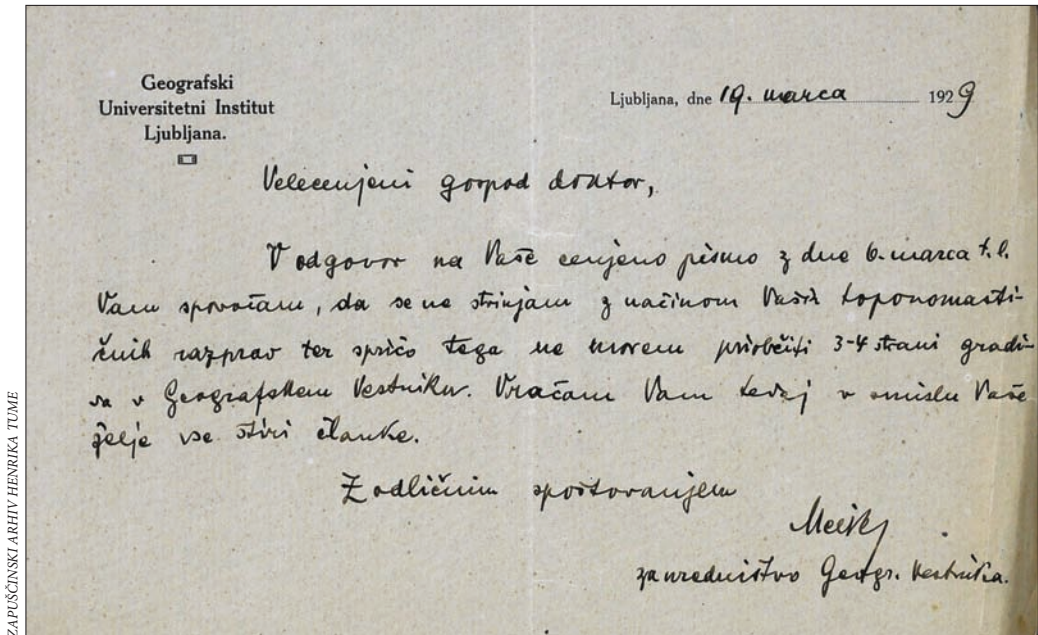 Geografski
Universitetni Institut
Ljubljana.
Ljubljana, dne 19. marca 1929
Velecenjeni gospod doktor,
V odgovor na Vaše cenjeno pismo z dne 6. marca t. l.
Vam sporočam, da se ne strinjam z načinom Vaših toponomasti-
čnih razprav ter spričo tega ne morem priobčiti 3-4 strani gradi-
va v Geografskem Vestniku. Vračam Vam tedaj v smislu Vaše
želje vse štiri članke.
Z odličnim spoštovanjem
za uredništvo Geogr. Vestnika.
ZAPUŠČINSKI ARHIV HENRIKA TUME